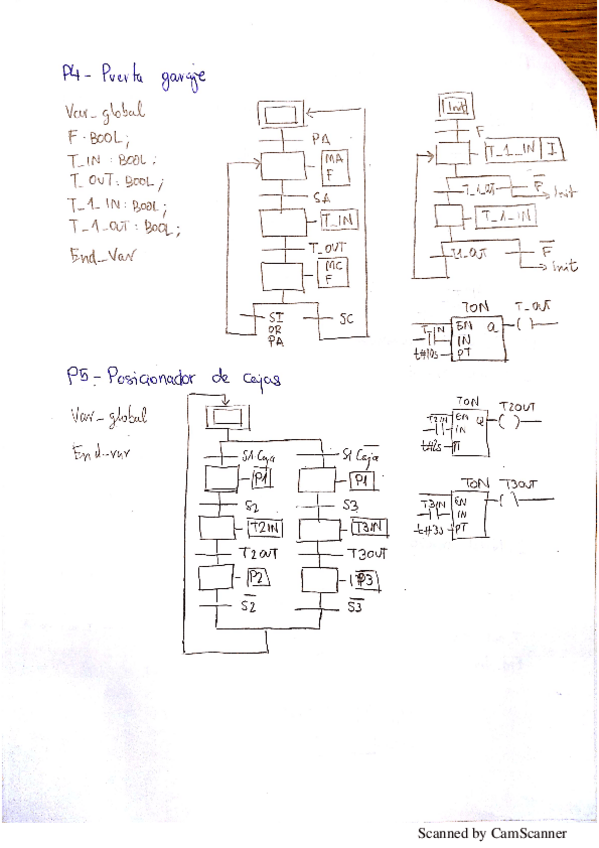 P4- Puerta garaje
Var_global
F: BOOL;
T_IN : BOOL;
T_OUT: BOOL;
T_1_IN: BOOL;
T_1_OUT: BOOL;
End_Var
PA
MA
F
SA
T_IN
T_OUT
MC
F
SI
OR
PA
SC
Init
F
T_1_IN I
T_1_OUT
F̅
Init
T_1_IN
T1_OUT
F̅
init
TON
T_OUT
T_IN
EN
Q
IN
t#10s
PT
P5.- Posicionador de cajas
Var_global
End_var
S1 Caja
S1 C̅a̅j̅a̅
P1
P1
S2
S3
T2IN
T3IN
T2OUT
T3OUT
P2
P3
S̅2̅
S̅3̅
TON
T2OUT
T2IN
EN
Q
IN
t#2s
TON
T3OUT
T3IN
EN
IN
t#3s
PT
Scanned by CamScanner